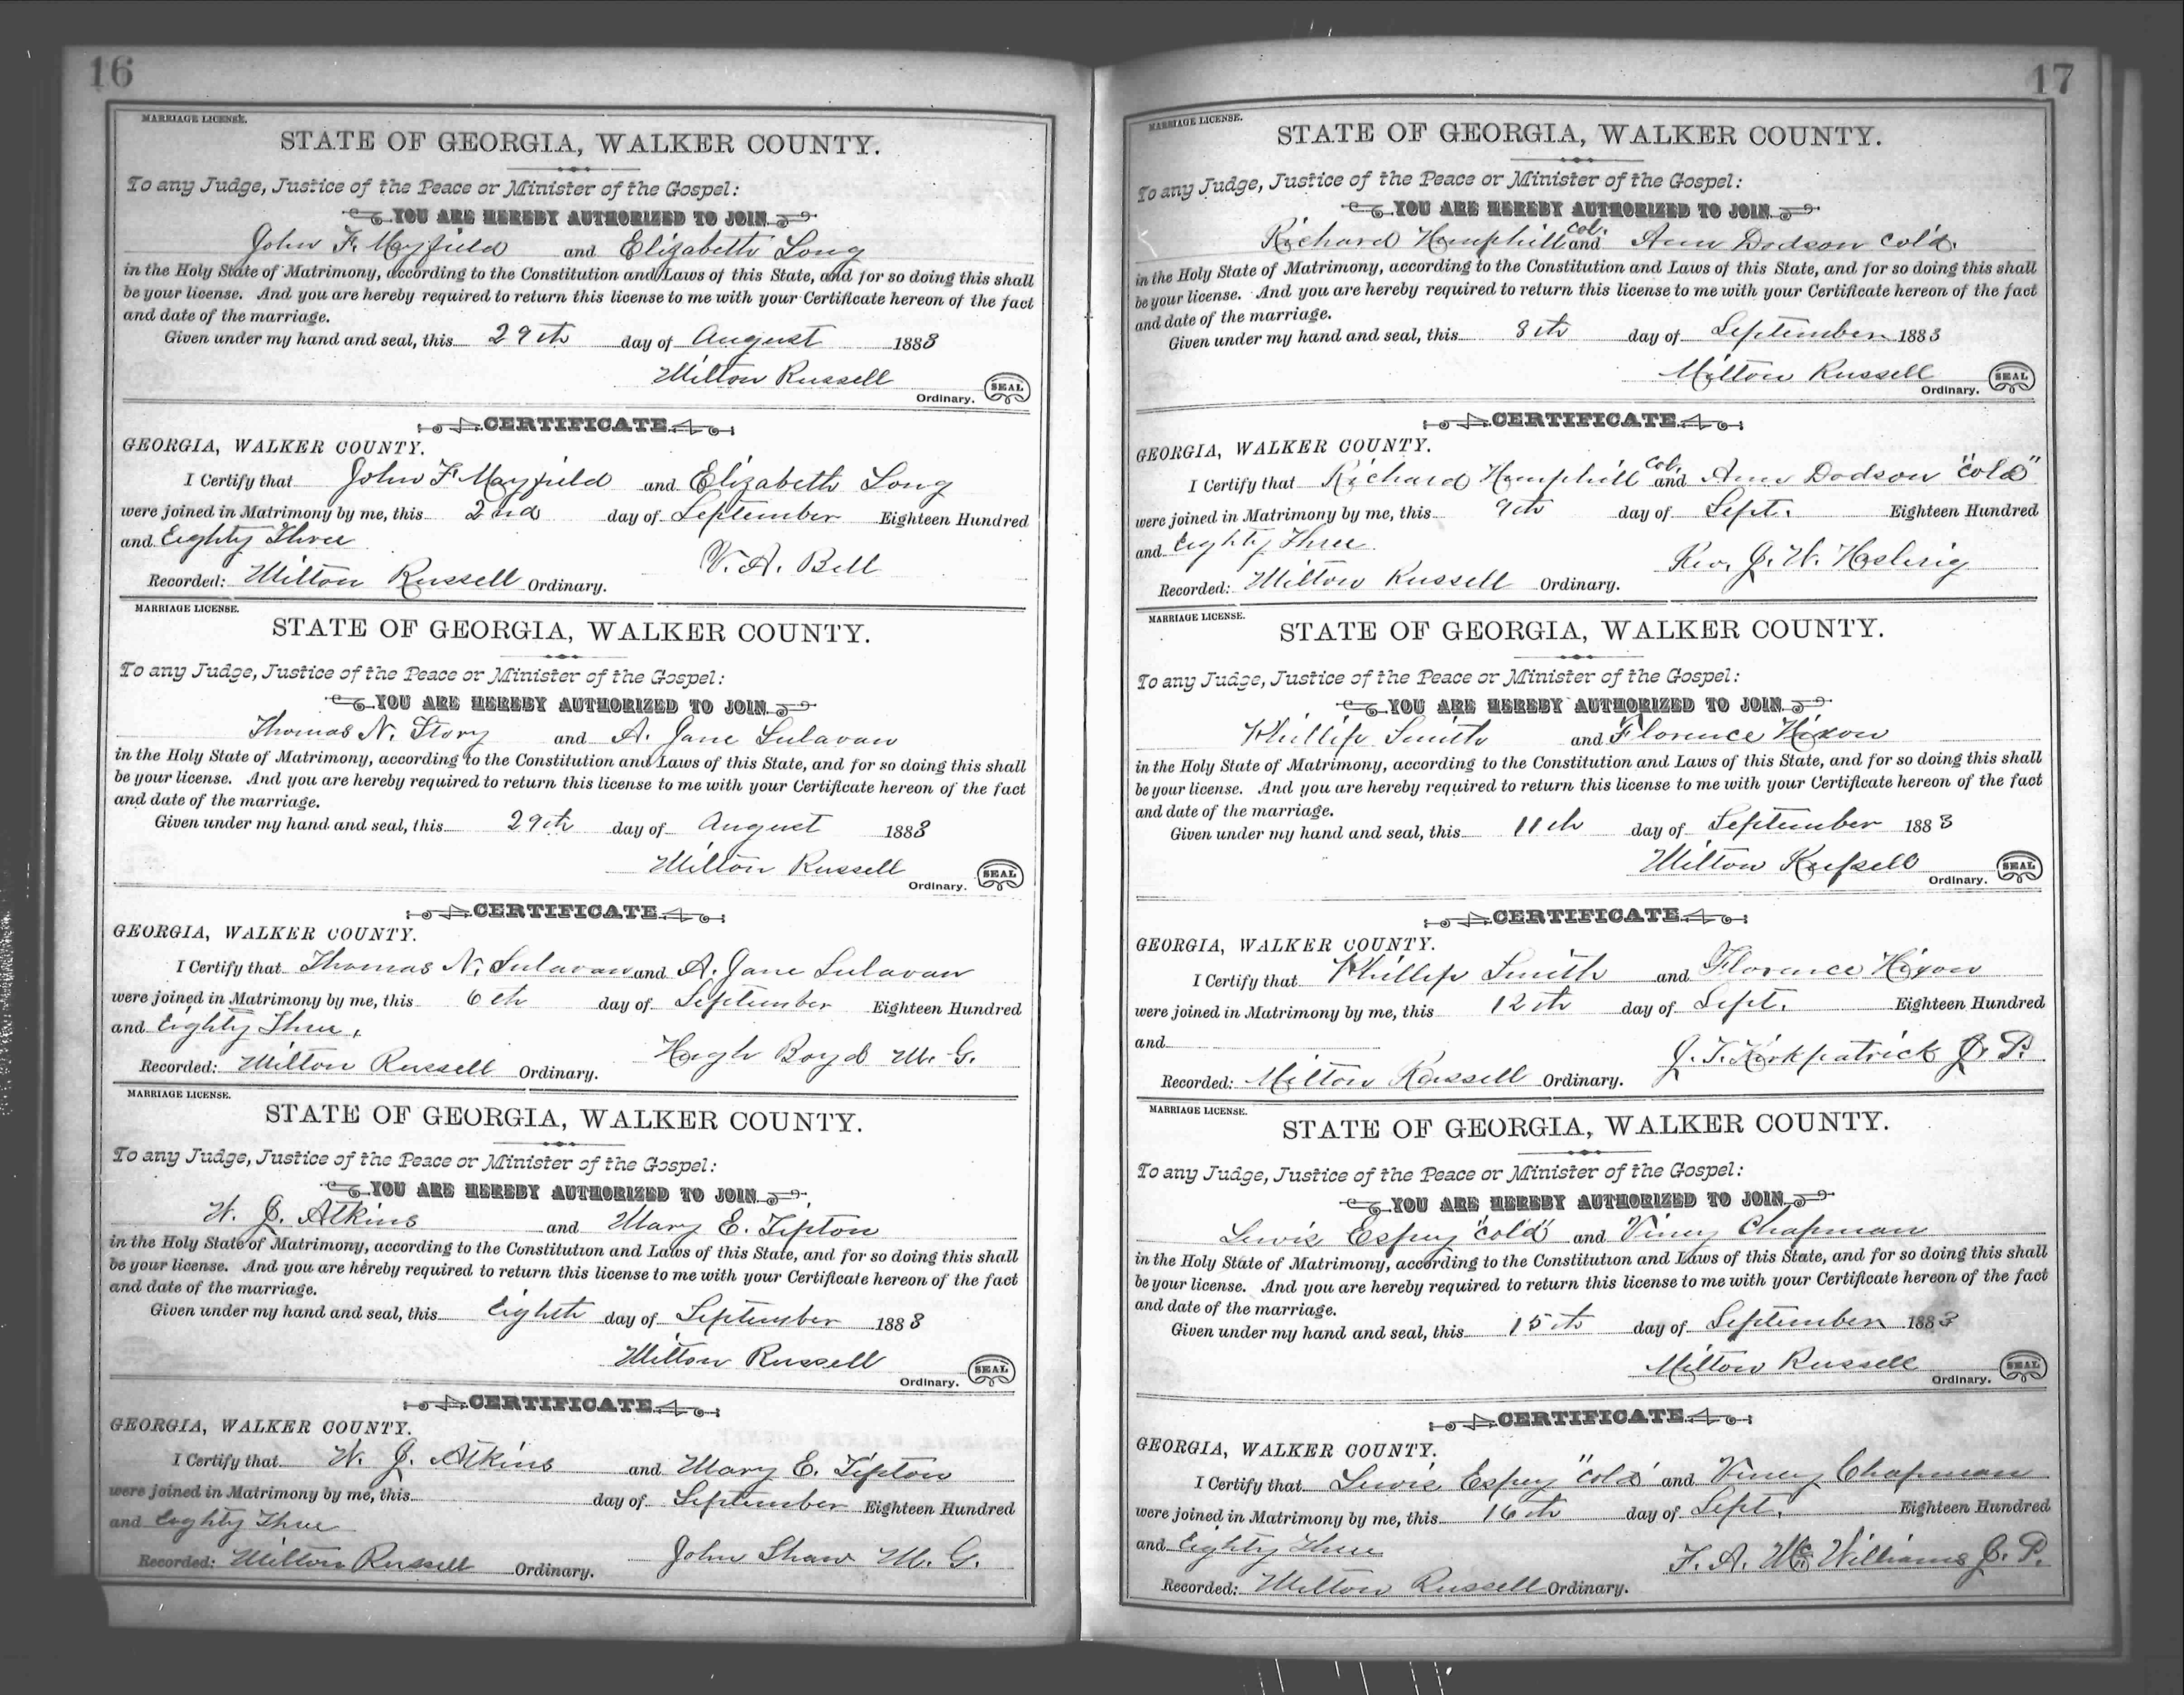 16
MARRIAGE LICENSE.
STATE OF GEORGIA, WALKER COUNTY.
To any Judge, Justice of the Peace or Minister of the Gospel:
YOU ARE HEREBY AUTHORIZED TO JOIN
John F. Mayfield and Elizabeth Long
in the Holy State of Matrimony, according to the Constitution and Laws of this State, and for so doing this shall
be your license. And you are hereby required to return this license to me with your Certificate hereon of the fact
and date of the marriage.
Given under my hand and seal, this 29th day of August 1883
Milton Russell
Ordinary. SEAL
CERTIFICATE
GEORGIA, WALKER COUNTY.
I Certify that John F. Mayfield and Elizabeth Long
were joined in Matrimony by me, this 2nd day of September Eighteen Hundred
and Eighty Three
V. A. Bell
Recorded: Milton Russell Ordinary.
MARRIAGE LICENSE.
STATE OF GEORGIA, WALKER COUNTY.
To any Judge, Justice of the Peace or Minister of the Gospel:
YOU ARE HEREBY AUTHORIZED TO JOIN
Thomas N. Story and A. Jane Sulavan
in the Holy State of Matrimony, according to the Constitution and Laws of this State, and for so doing this shall
be your license. And you are hereby required to return this license to me with your Certificate hereon of the fact
and date of the marriage.
Given under my hand and seal, this 29th day of August 1883
Milton Russell
Ordinary. SEAL
CERTIFICATE
GEORGIA, WALKER COUNTY.
I Certify that Thomas N. Sulavan and A. Jane Sulavan
were joined in Matrimony by me, this 6th day of September Eighteen Hundred
and Eighty Three.
Hugh Boyd M. G.
Recorded: Milton Russell Ordinary.
MARRIAGE LICENSE.
STATE OF GEORGIA, WALKER COUNTY.
To any Judge, Justice of the Peace or Minister of the Gospel:
YOU ARE HEREBY AUTHORIZED TO JOIN
W. J. Atkins and Mary E. Tipton
in the Holy State of Matrimony, according to the Constitution and Laws of this State, and for so doing this shall
be your license. And you are hereby required to return this license to me with your Certificate hereon of the fact
and date of the marriage.
Given under my hand and seal, this Eighth day of September 1883
Milton Russell
Ordinary. SEAL
CERTIFICATE
GEORGIA, WALKER COUNTY.
I Certify that W. J. Atkins and Mary E. Tipton
were joined in Matrimony by me, this day of September Eighteen Hundred
and Eighty Three
John Shaw M. G.
Recorded: Milton Russell Ordinary.
17
MARRIAGE LICENSE.
STATE OF GEORGIA, WALKER COUNTY.
To any Judge, Justice of the Peace or Minister of the Gospel:
YOU ARE HEREBY AUTHORIZED TO JOIN
Richard Hemphill col. and Ann Dodson col'd.
in the Holy State of Matrimony, according to the Constitution and Laws of this State, and for so doing this shall
be your license. And you are hereby required to return this license to me with your Certificate hereon of the fact
and date of the marriage.
Given under my hand and seal, this 8th day of September 1883
Milton Russell
Ordinary. SEAL
CERTIFICATE
GEORGIA, WALKER COUNTY.
I Certify that Richard Hemphill col. and Ann Dodson "cold"
were joined in Matrimony by me, this 9th day of Sept. Eighteen Hundred
and Eighty Three.
Rev. J. W.
Recorded: Milton Russell Ordinary.
MARRIAGE LICENSE.
STATE OF GEORGIA, WALKER COUNTY.
To any Judge, Justice of the Peace or Minister of the Gospel:
YOU ARE HEREBY AUTHORIZED TO JOIN
Phillip Smith and Florence Hixon
in the Holy State of Matrimony, according to the Constitution and Laws of this State, and for so doing this shall
be your license. And you are hereby required to return this license to me with your Certificate hereon of the fact
and date of the marriage.
Given under my hand and seal, this 11th day of September 1883
Milton Russell
Ordinary. SEAL
CERTIFICATE
GEORGIA, WALKER COUNTY.
I Certify that Phillip Smith and Florence Hixon
were joined in Matrimony by me, this 12th day of Sept. Eighteen Hundred
and
J. T. Kirkpatrick J. P.
Recorded: Milton Russell Ordinary.
MARRIAGE LICENSE.
STATE OF GEORGIA, WALKER COUNTY.
To any Judge, Justice of the Peace or Minister of the Gospel:
YOU ARE HEREBY AUTHORIZED TO JOIN
Lewis Espey "cold" and Viney Chapman
in the Holy State of Matrimony, according to the Constitution and Laws of this State, and for so doing this shall
be your license. And you are hereby required to return this license to me with your Certificate hereon of the fact
and date of the marriage.
Given under my hand and seal, this 15th day of September 1883
Milton Russell
Ordinary. SEAL
CERTIFICATE
GEORGIA, WALKER COUNTY.
I Certify that Lewis Espey "cold" and Viney Chapman
were joined in Matrimony by me, this 16th day of Sept. Eighteen Hundred
and Eighty Three
F. A. McWilliams J. P.
Recorded: Milton Russell Ordinary.